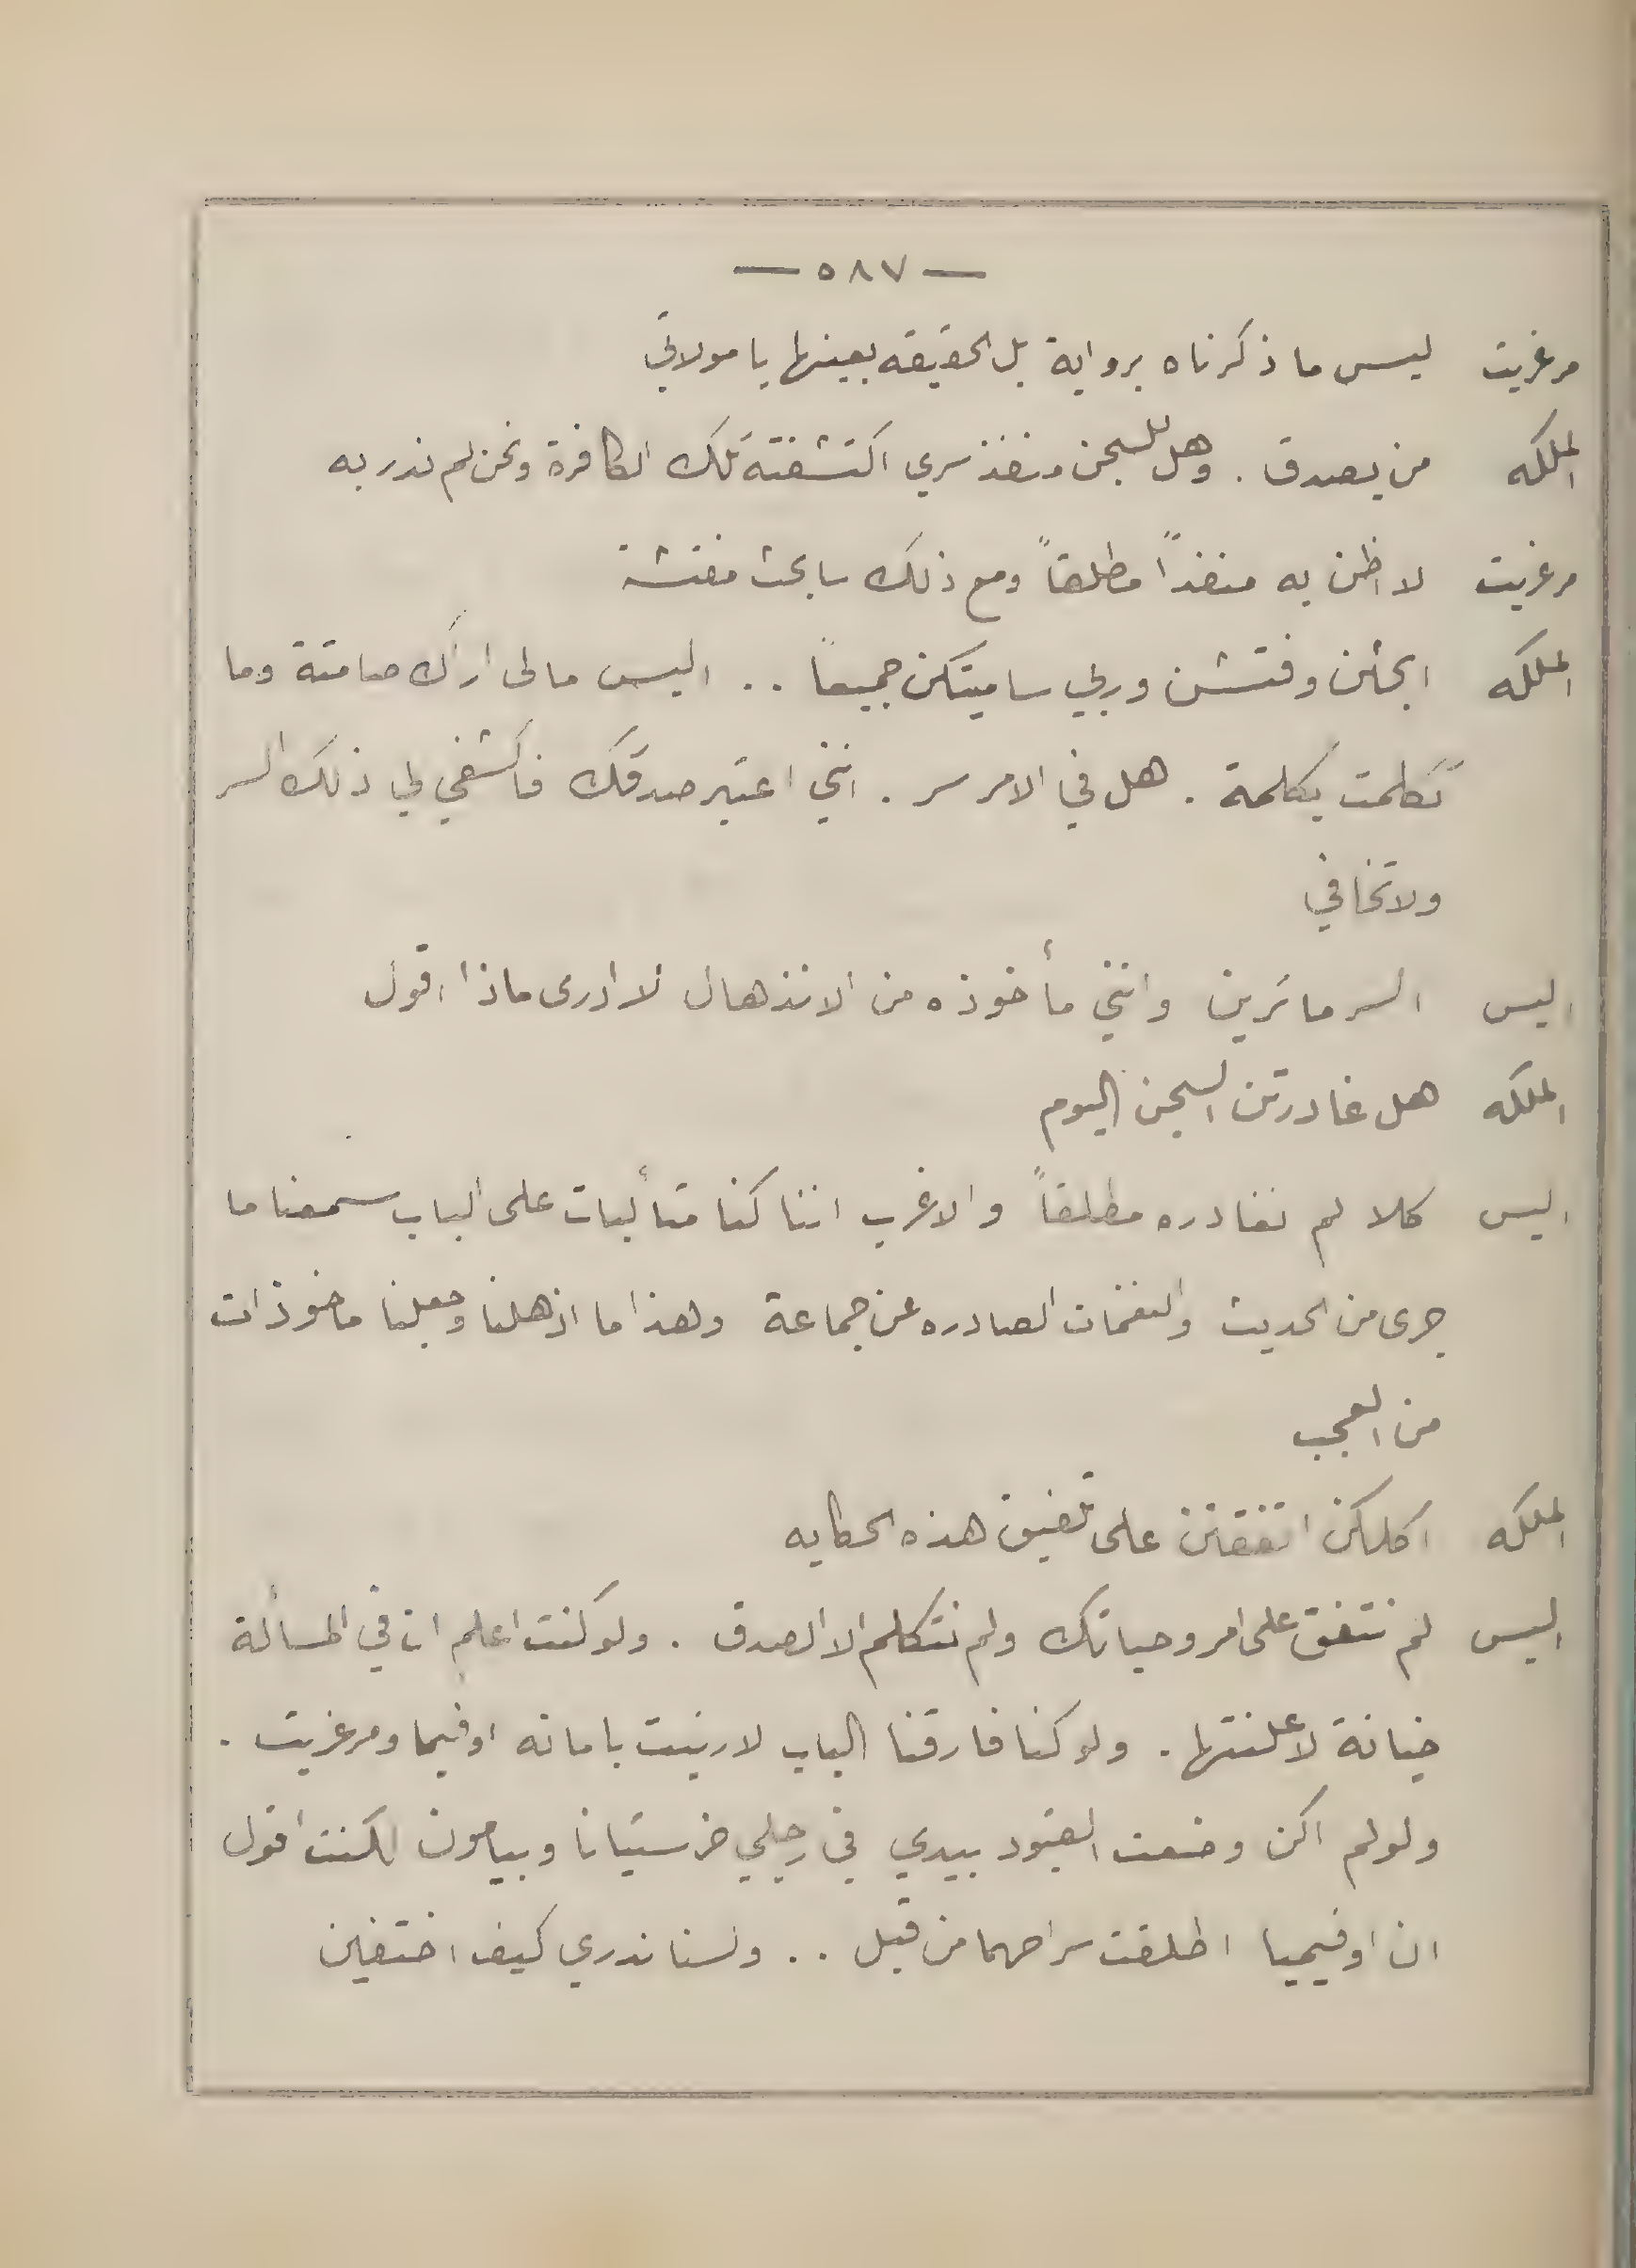 — ٥٨٧ —
مرغريت ليس ما ذكرناه برواية بل الحقيقه بعينها يا مولاتي
الملكه من يصدق . وهل للسجن منفذ سري اكتشفته تلك الكافرة ونحن لم ندر به
مرغريت لا اظن به منفذاً مطلقاً ومع ذلك سابحث مفتشة
الملكه ابحثن وفتشن وربي ساميتكن جميعاً .. اليس مالى اراك صامتة وما
تكلمت بكلمة . هل في الامر سر . انني اعتبر صدقك فاكشفي لي ذلك السر
ولا تخافي
اليس السر ما ترين وانني مأخوذه من الانذهال لا ادرى ماذا اقول
الملكه هل غادرتن السجن اليوم
اليس كلا لم نغادره مطلقاً والاغرب اننا كنا متألبات على الباب سمعنا ما
جرى من الحديث والنغمات الصادره عن جماعة وهذا ما اذهلنا وجعلنا ماخوذات
من العجب
الملكه اكلكن اتفقتن على تلفيق هذه الحكايه
اليس لم نتفق على امر وحياتك ولم نتكلم الا الصدق . ولو كنت اعلم ان في المسألة
خيانة لاعلنتها . ولو كنا فارقنا الباب لارتبت بامانه اوفيما ومرغريت .
ولو لم اكن وضعت القيود بيدي في رجلي خرستيانا وبيامون لكنت اقول
ان اوفيميا اطلقت سراحهما من قبل .. ولسنا ندري كيف اختفين